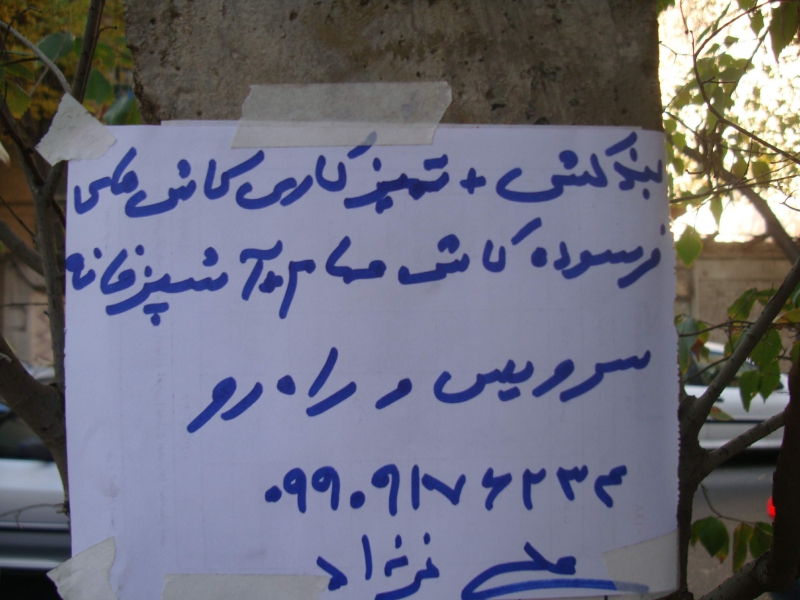 بندکشی + تمیز کاری کاشی های
فرسوده کاشی حمام + آشپزخانه
سرویس و راه رو
۰۹۹۰۹۱۷۶۲۳۴
علی